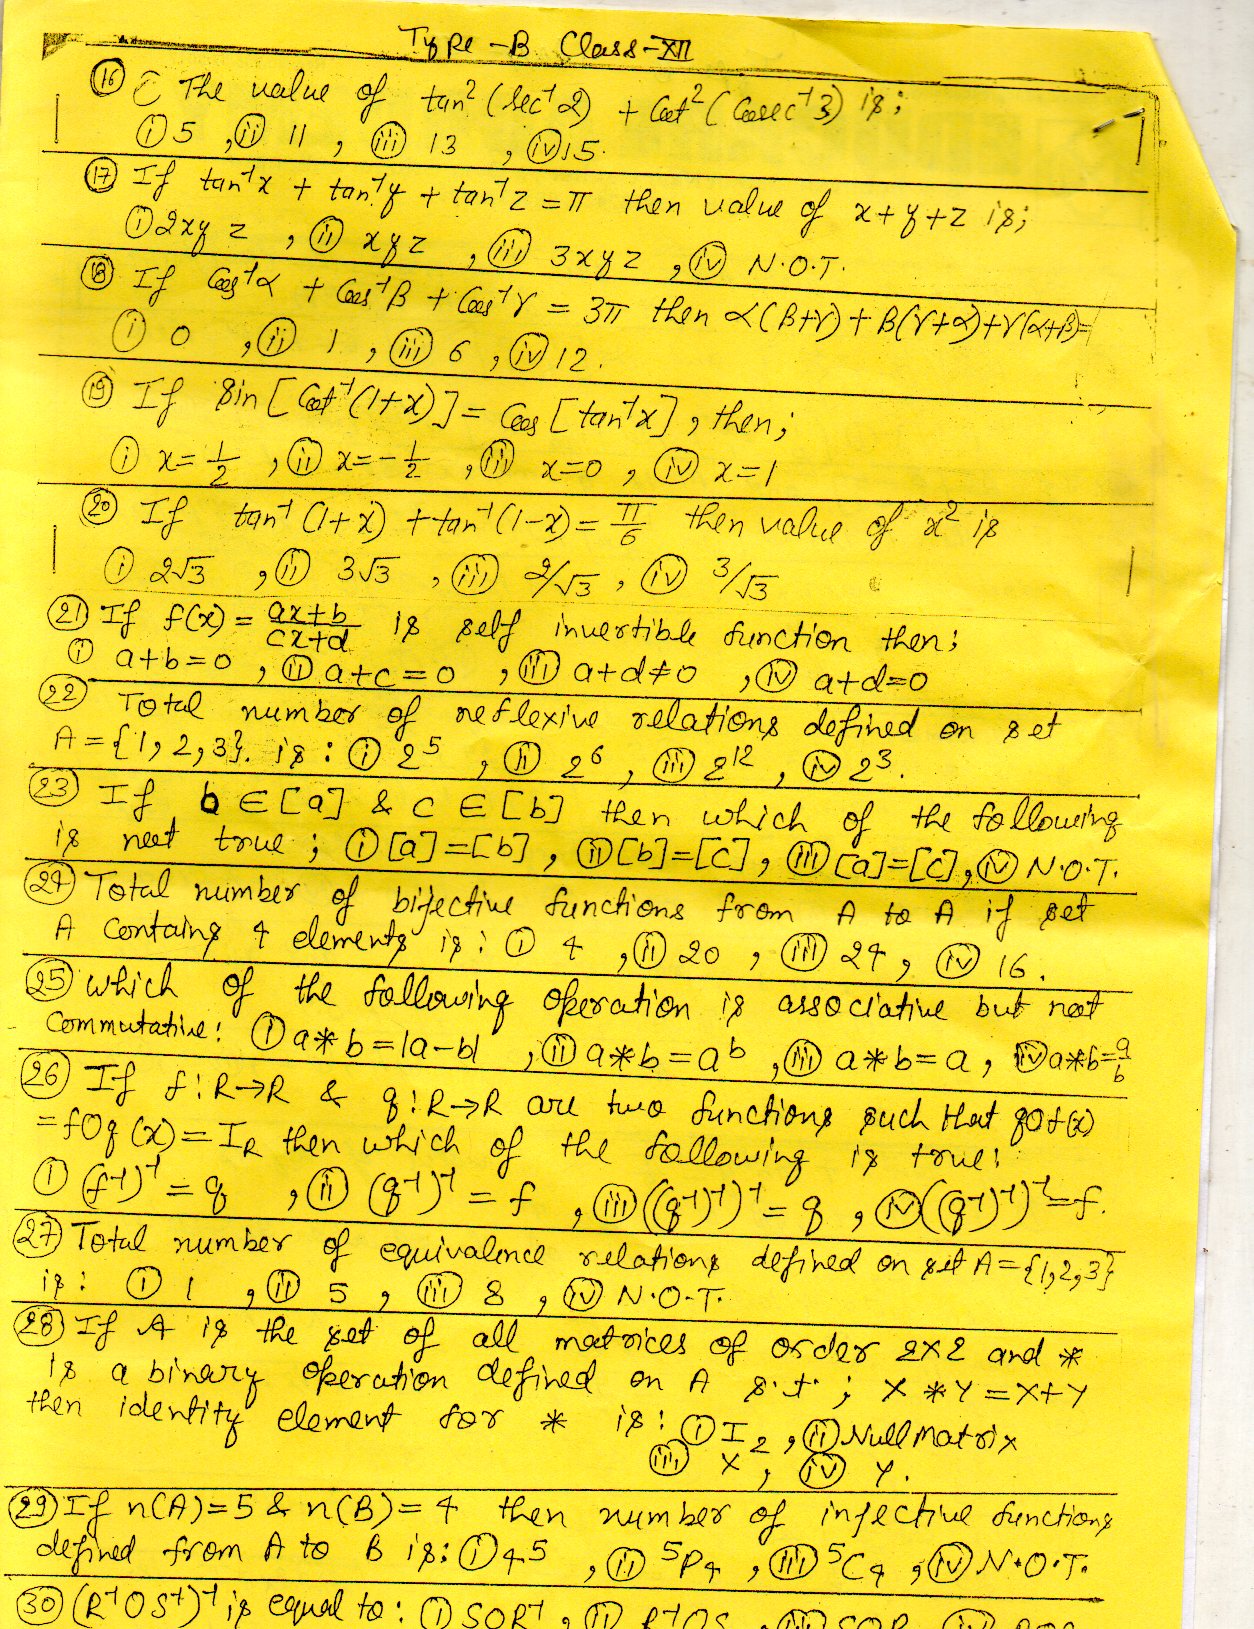 Type - B Class - XII
(16) The value of tan² (sec⁻¹ 2) + Cot² (Cosec⁻¹ 3) is;
(i) 5 , (ii) 11 , (iii) 13 , (iv) 15.
(17) If tan⁻¹x + tan⁻¹y + tan⁻¹z = π then value of x+y+z is;
(i) 2xyz , (ii) xyz , (iii) 3xyz , (iv) N.O.T.
(18) If Cos⁻¹α + Cos⁻¹β + Cos⁻¹γ = 3π then α(β+γ) + β(γ+α) + γ(α+β)=
(i) 0 , (ii) 1 , (iii) 6 , (iv) 12.
(19) If Sin [Cot⁻¹(1+x)] = Cos [tan⁻¹x] , then;
(i) x = 1/2 , (ii) x = -1/2 , (iii) x=0 , (iv) x=1
(20) If tan⁻¹(1+x) + tan⁻¹(1-x) = π/6 then value of x² is
(i) 2√3 , (ii) 3√3 , (iii) 2/√3 , (iv) 3/√3
(21) If f(x) = (ax+b)/(cx+d) is self invertible function then;
(i) a+b=0 , (ii) a+c=0 , (iii) a+d≠0 , (iv) a+d=0
(22) Total number of reflexive relations defined on set
A = {1, 2, 3}. is : (i) 2⁵ , (ii) 2⁶ , (iii) 2¹² , (iv) 2³.
(23) If b ∈ [a] & c ∈ [b] then which of the following
is not true ; (i) [a]=[b] , (ii) [b]=[c] , (iii) [a]=[c] , (iv) N.O.T.
(24) Total number of bijective functions from A to A if set
A Contains 4 elements is : (i) 4 , (ii) 20 , (iii) 24 , (iv) 16.
(25) Which of the following operation is associative but not
Commutative : (i) a*b = |a-b| , (ii) a*b = aᵇ , (iii) a*b = a , (iv) a*b = a/b
(26) If f : R→R & g : R→R are two functions such that gof(x)
= fog (x) = I_R then which of the following is true :
(i) (f⁻¹)⁻¹ = g , (ii) (g⁻¹)⁻¹ = f , (iii) ((g⁻¹)⁻¹)⁻¹ = g , (iv) ((g⁻¹)⁻¹)⁻¹ = f.
(27) Total number of equivalence relations defined on set A = {1,2,3}
is : (i) 1 , (ii) 5 , (iii) 8 , (iv) N.O.T.
(28) If A is the set of all matrices of order 2x2 and *
is a binary operation defined on A s.t. ; X * Y = X+Y
then identity element for * is : (i) I₂ , (ii) Null Matrix
(iii) X , (iv) Y.
(29) If n(A)=5 & n(B)= 4 then number of injective functions
defined from A to B is : (i) 4⁵ , (ii) ⁵P₄ , (iii) ⁵C₄ , (iv) N.O.T.
(30) (R⁻¹OS⁻¹)⁻¹ is equal to : (i) SOR⁻¹ , (ii) R⁻¹OS , (iii) SOR , (iv)